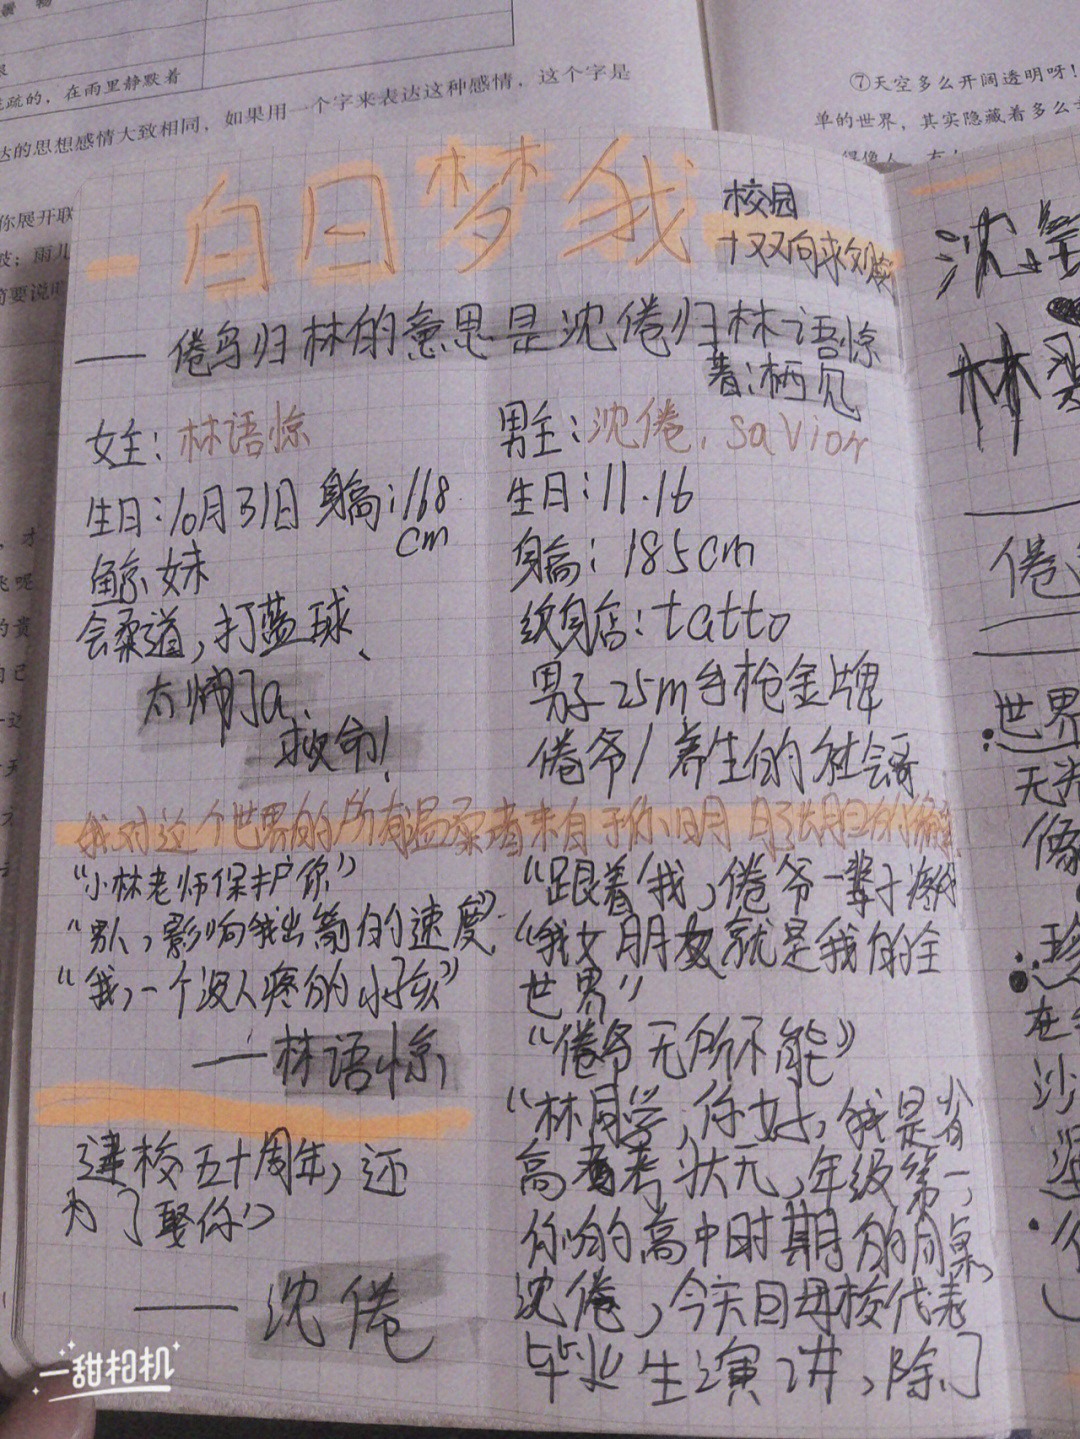 疏的，在雨里静默着
达的思想感情大致相同，如果用一个字来表达这种感情，这个字是
你展开联
⑦天空多么开阔透明呀！
单的世界，其实隐藏着多么
白日梦我
校园
+双向救赎
——倦鸟归林的意思是沈倦归林语惊
著：栖见
女主：林语惊
生日：10月31日 身高：168
cm
鲸妹
会柔道，打蓝球、
太帅了a、
救命！
男主：沈倦，savior
生日：11.16
身高：185cm
纹身店：tatto
男子25m手枪金牌
倦爷/养生的社会哥
我对这个世界的所有温柔都来自于你
“小林老师保护你”
“男人，影响我出箭的速度”
“我，一个没人疼的小孩”
——林语惊
建校五十周年，还
为了娶你”
——沈倦
“跟着我，倦爷一辈子疼你
“我女朋友就是我的全
世界”
“倦爷无所不能”
“林同学，你好，我是省
高考状元，年级第一，
你的高中时期的同桌，
沈倦，今天回母校代表
毕业生演讲，除了
沈
林
倦
世界
像
珍
在
沙
一甜相机